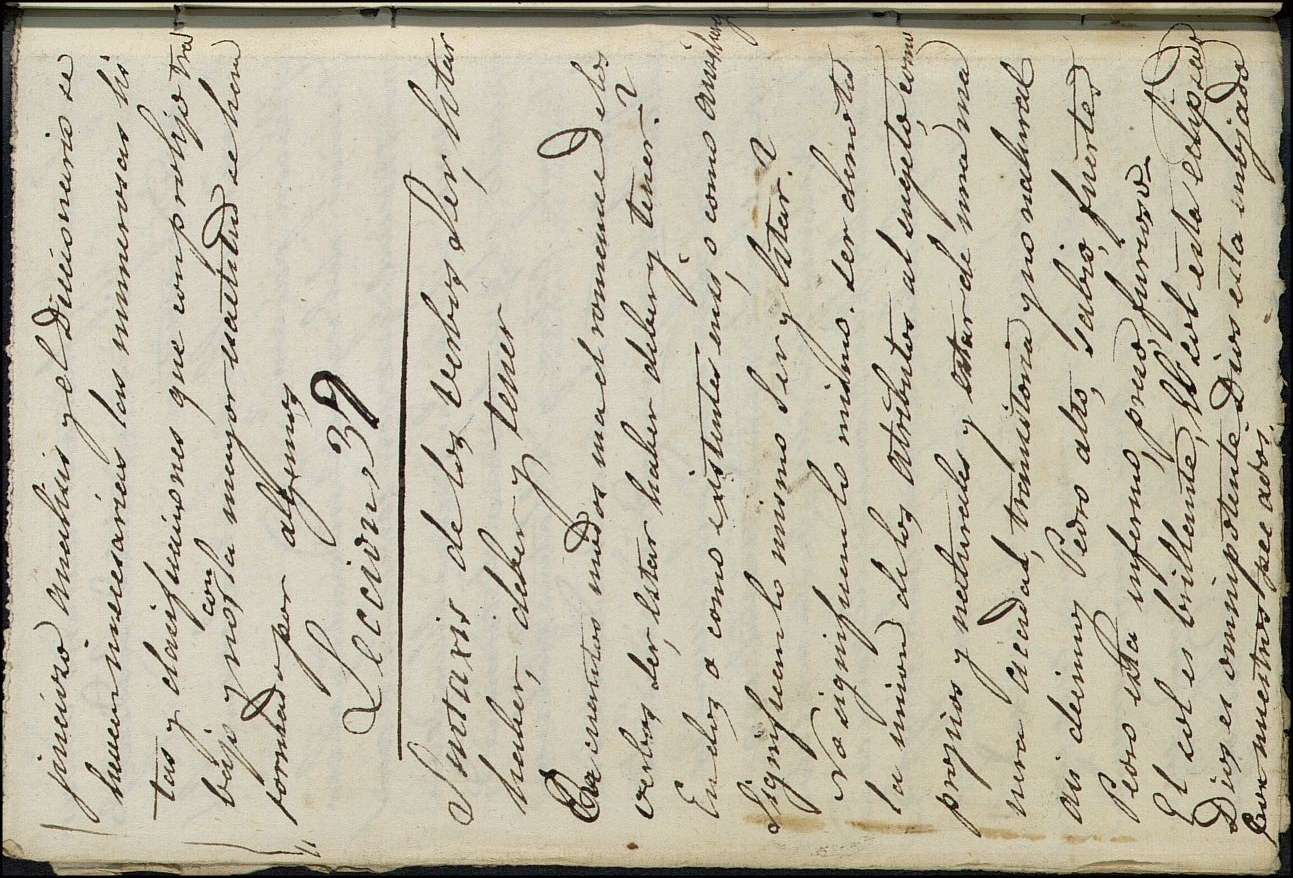 juicioso analisis y el Diccionario se
hacen necesarias las numerosas lis
tas y clasificaciones que con prolijo tra
bajo y no con la mayor exactitud se han
formado por algunos
Leccion, 39
Sintaxis de los verbos Ser, Estar
haber, deber y tener
En cuantos modos usa el romance de los
verbos Ser, Estar haber deber y tener?
En dos o como existentes en si, o como
Significan lo mismo Ser y Estar?
No significan lo mismo. ser denota
la union de los atributos al sugeto, como
propios y naturales y estar de una ma
nera accidental, transitoria y no natural
asi decimos Pedro es alto, sabio, fuerte
Pedro esta enfermo, preso, furioso
El sol es brillante, El sol esta eclipsado
Dios es omnipotente Dios esta enojado
por nuestros pecados.